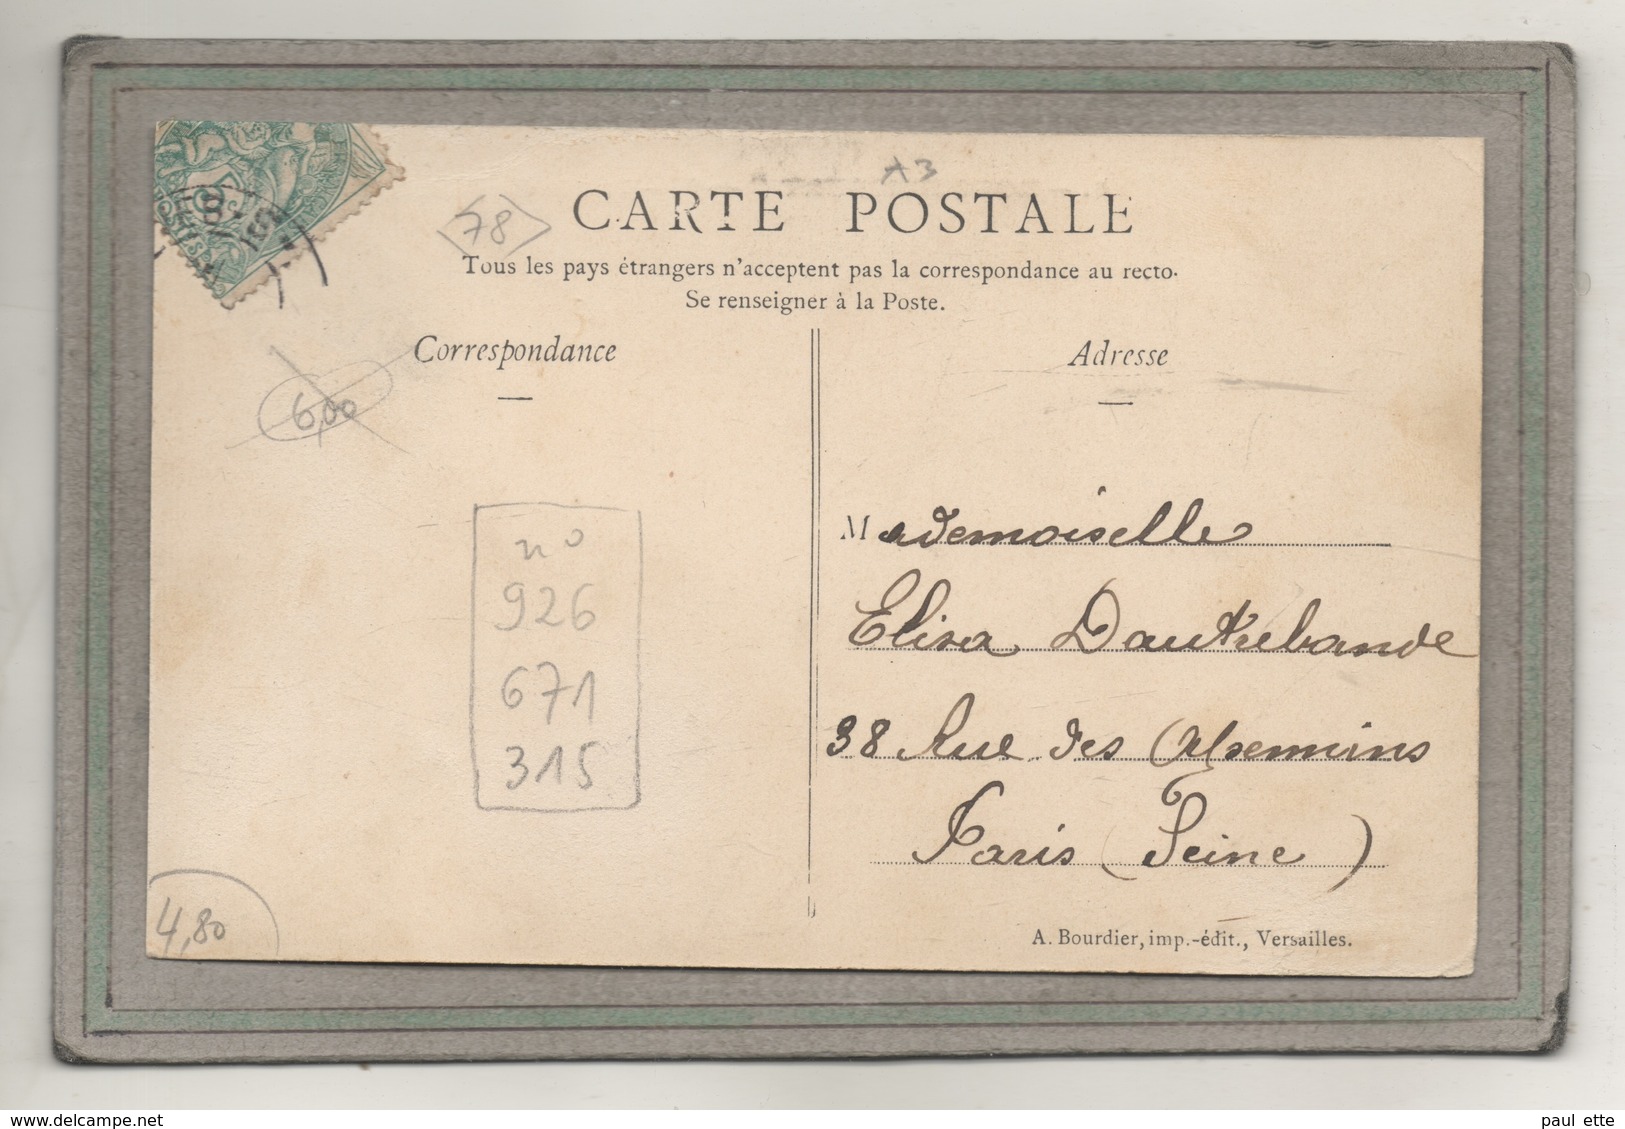 A3
78
CARTE POSTALE
Tous les pays étrangers n'acceptent pas la correspondance au recto.
Se renseigner à la Poste.
Correspondance
Adresse
6,00
no
926
671
315
4,80
Mademoiselle
Elisa Dautrebande
38 Rue des
Paris (Seine)
A. Bourdier, imp.-édit., Versailles.
paul ette